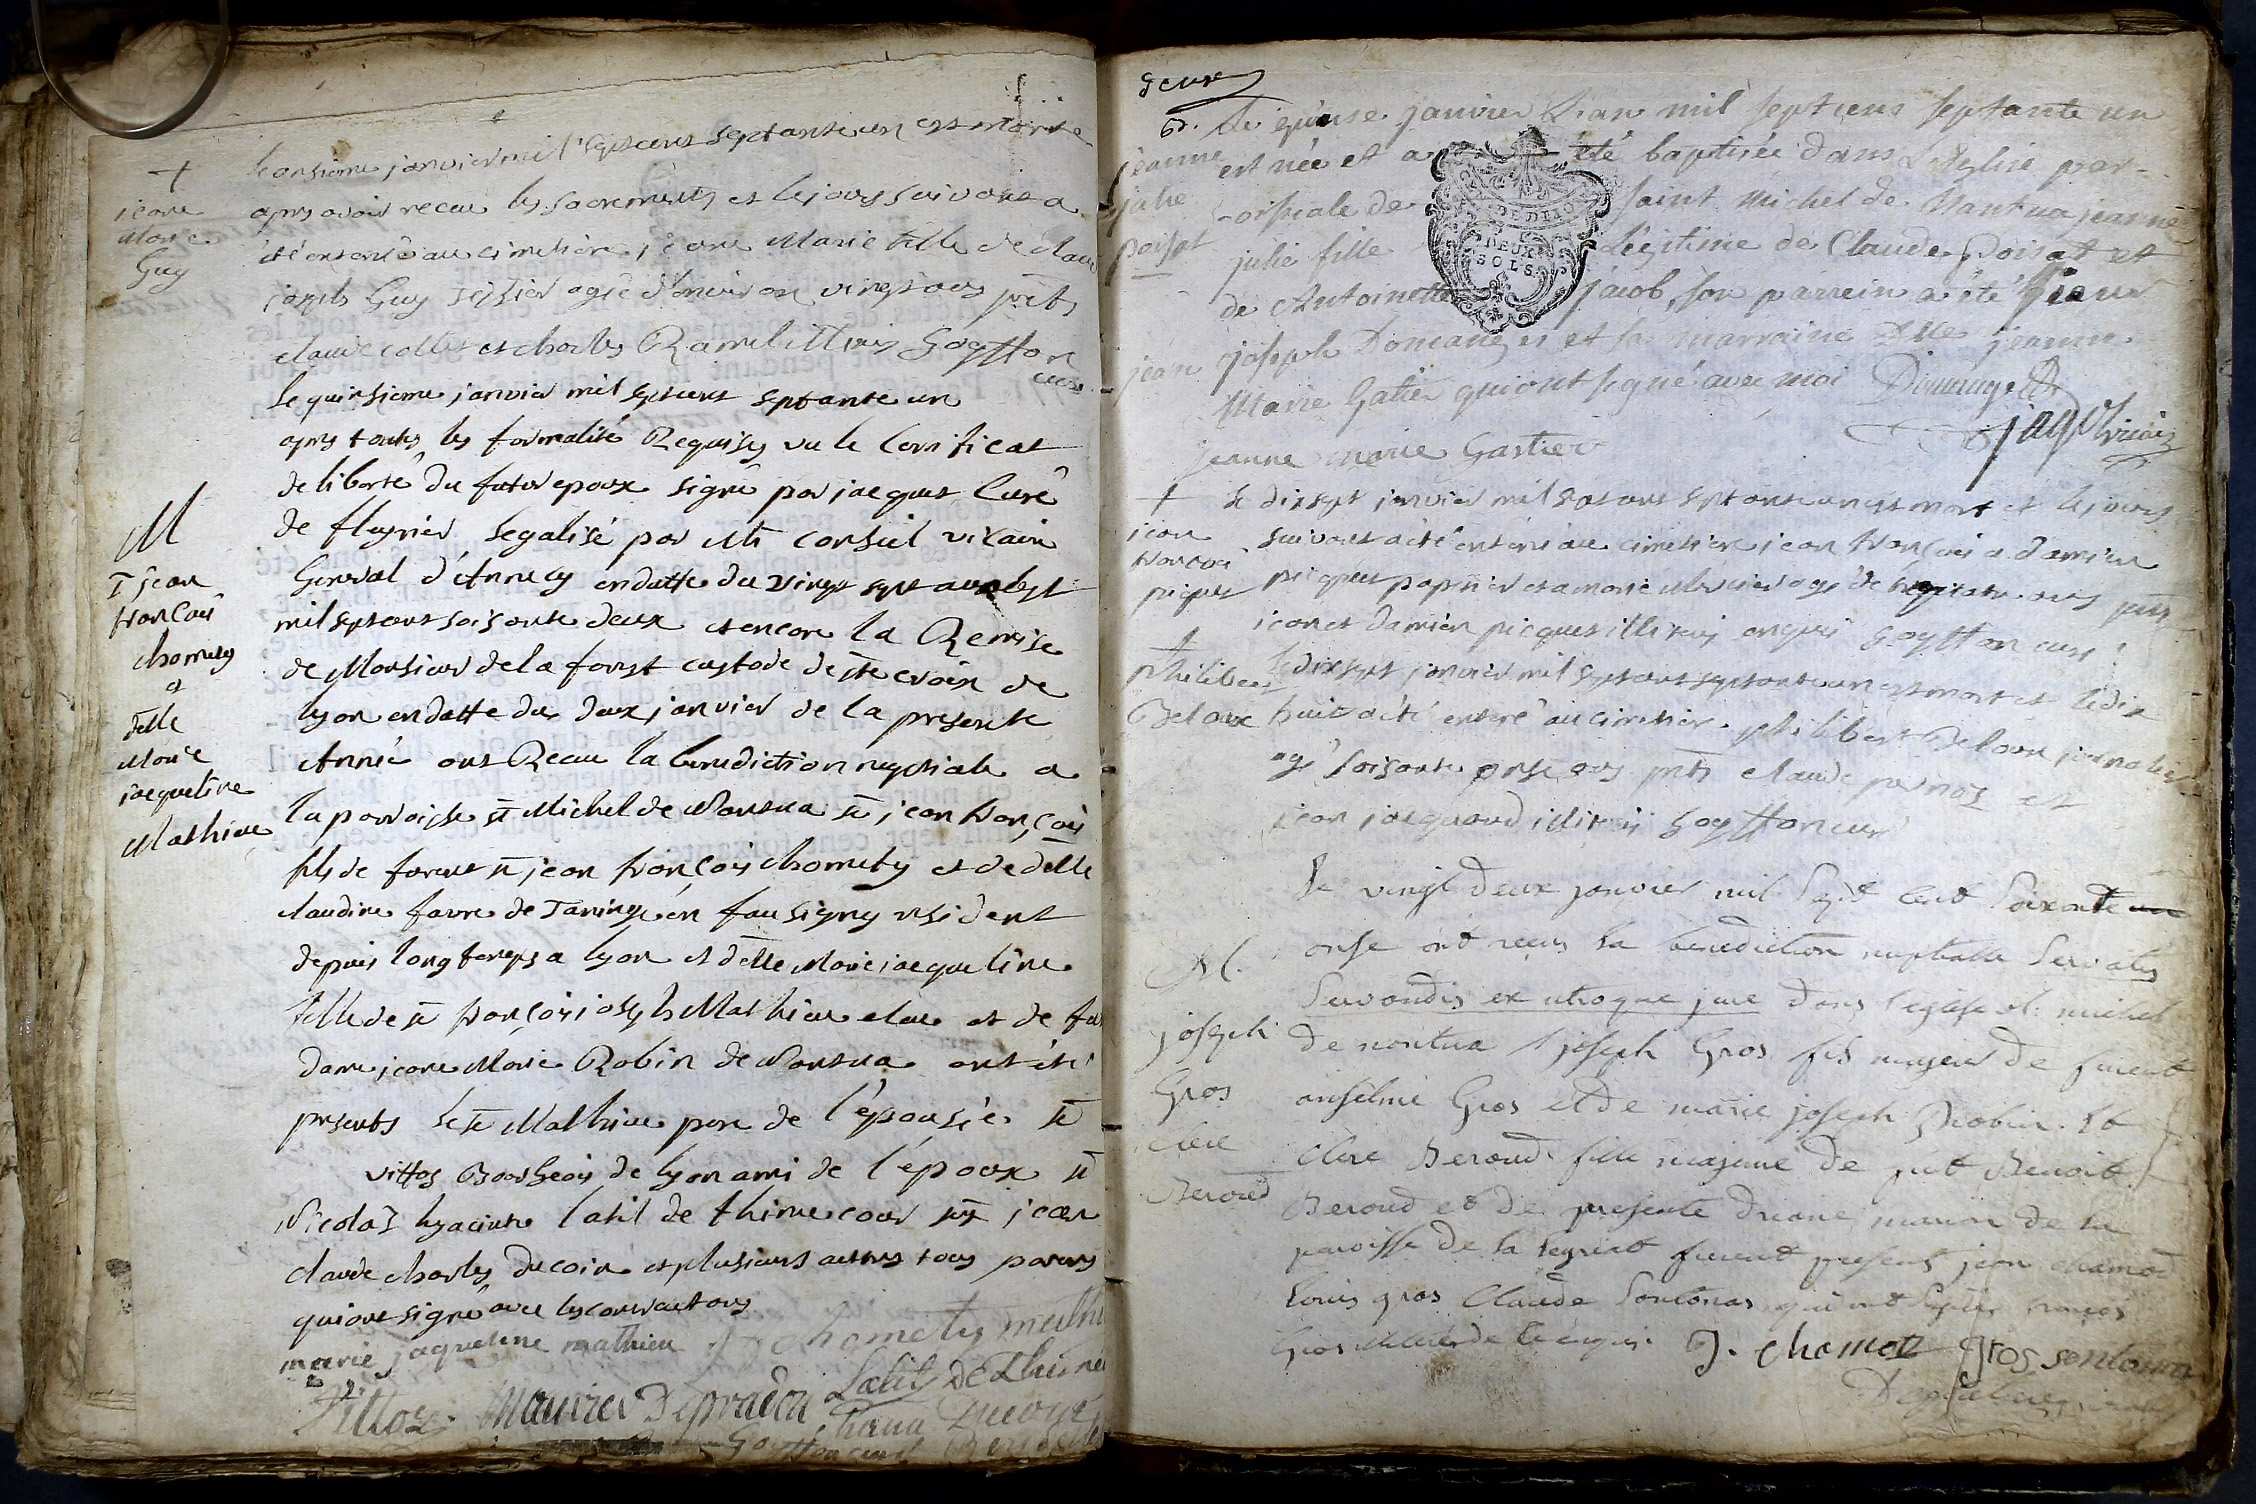 +
jeane
Marie
Guy
le onsieme janvier mil septcent septante un est morte
apres avoir receu les sacrements et le jour suivant a
été enterré au cimetiere jeane Marie fille de claud
joseph Guy agé d'environ vingt ans pnts
claude collet et charles Ramel illiteris Goyffon
curé
M
jean
francois
chomety
a
delle
Marie
jacqueline
Mathieu
le quinsieme janvier mil septcent septante un
apres toutes les formalités Requises vu le Certificat
de liberté du futur epoux signé par jacques Curé
de flagnier legalisé par Mr conseil vicaire
General d'Annecy en datte du vingt sept
mil septcent soisante deux et encore la Remise
de Monsieur de la forest custode de ste croix de
lyon en datte du deux janvier de la presente
Année ont Receu la benediction nuptiale a
la parroisse st Michel de Nantua sr jean françois
fils de sr jean françois chomety et de delle
claudine favre de Taninge en fausigny resident
depuis long temps a lyon et delle Marie jacqueline
fille de sr françois joseph Mathieu et de
dame jeane Marie Robin de Nantua ont été
presents le sr Mathieu pere de l'épousée sr
vittoz Bourgeois de lyon ami de l'époux sr
Nicolas hyacinte latil de thimecour sr jean
claude charles ducoin et plusieurs autres tous parens
qui ont signé avec les contractans
marie jaqueline mathieu chomety
Vittoz Mauriер Latil De Thime
Goyffon curé
deux
jeanne
julie
poisat
Le quinse janvier L'an mil septcens septante un
est née et a été baptisée dans L'Eglise par-
-oissiale de saint Michel de Nantua jeanne
julie fille Légitime de Claude Poisat et
de Antoinette jacob, son parrein a été
jean joseph Domange et sa marraine Dlle jeanne
Marie Gatier qui ont signé avec moi
jeanne marie Gastier
DE DIJO
DEUX
SOLS
+
jean
francois
piquet
le dixsept janvier mil septcent septante un est mort et le jour
suivant a été enterré au cimetiere jean françois a damien
picquet papetier et a marie agé de ans pnts
jean et damien picquet illiteris enquis Goyffon curé
+
Philibert
Beloux
le dixsept janvier mil septcent septante un est mort et le dix
huit a été enterré au cimetiere philibert Beloux journalier
agé soisante onse ans pnts claude et
jean jacquand illiteris Goyffon curé
M.
joseph
Gros
clere
Beroud
Le vingt deux janvier mil sept cent soixante
onse ont reçus la benediction nuptialle servatis
servandis ex utroque jure dans l'eglise st. michel
de nantua joseph Gros fils majeur de
anselme Gros et de marie joseph Robin. et
clere Beroud fille majeure de Benoit
Beroud et de presente de la
paroisse de furent presents jean chamot
louis gros Claude Sonthonas
J. chamot Gros